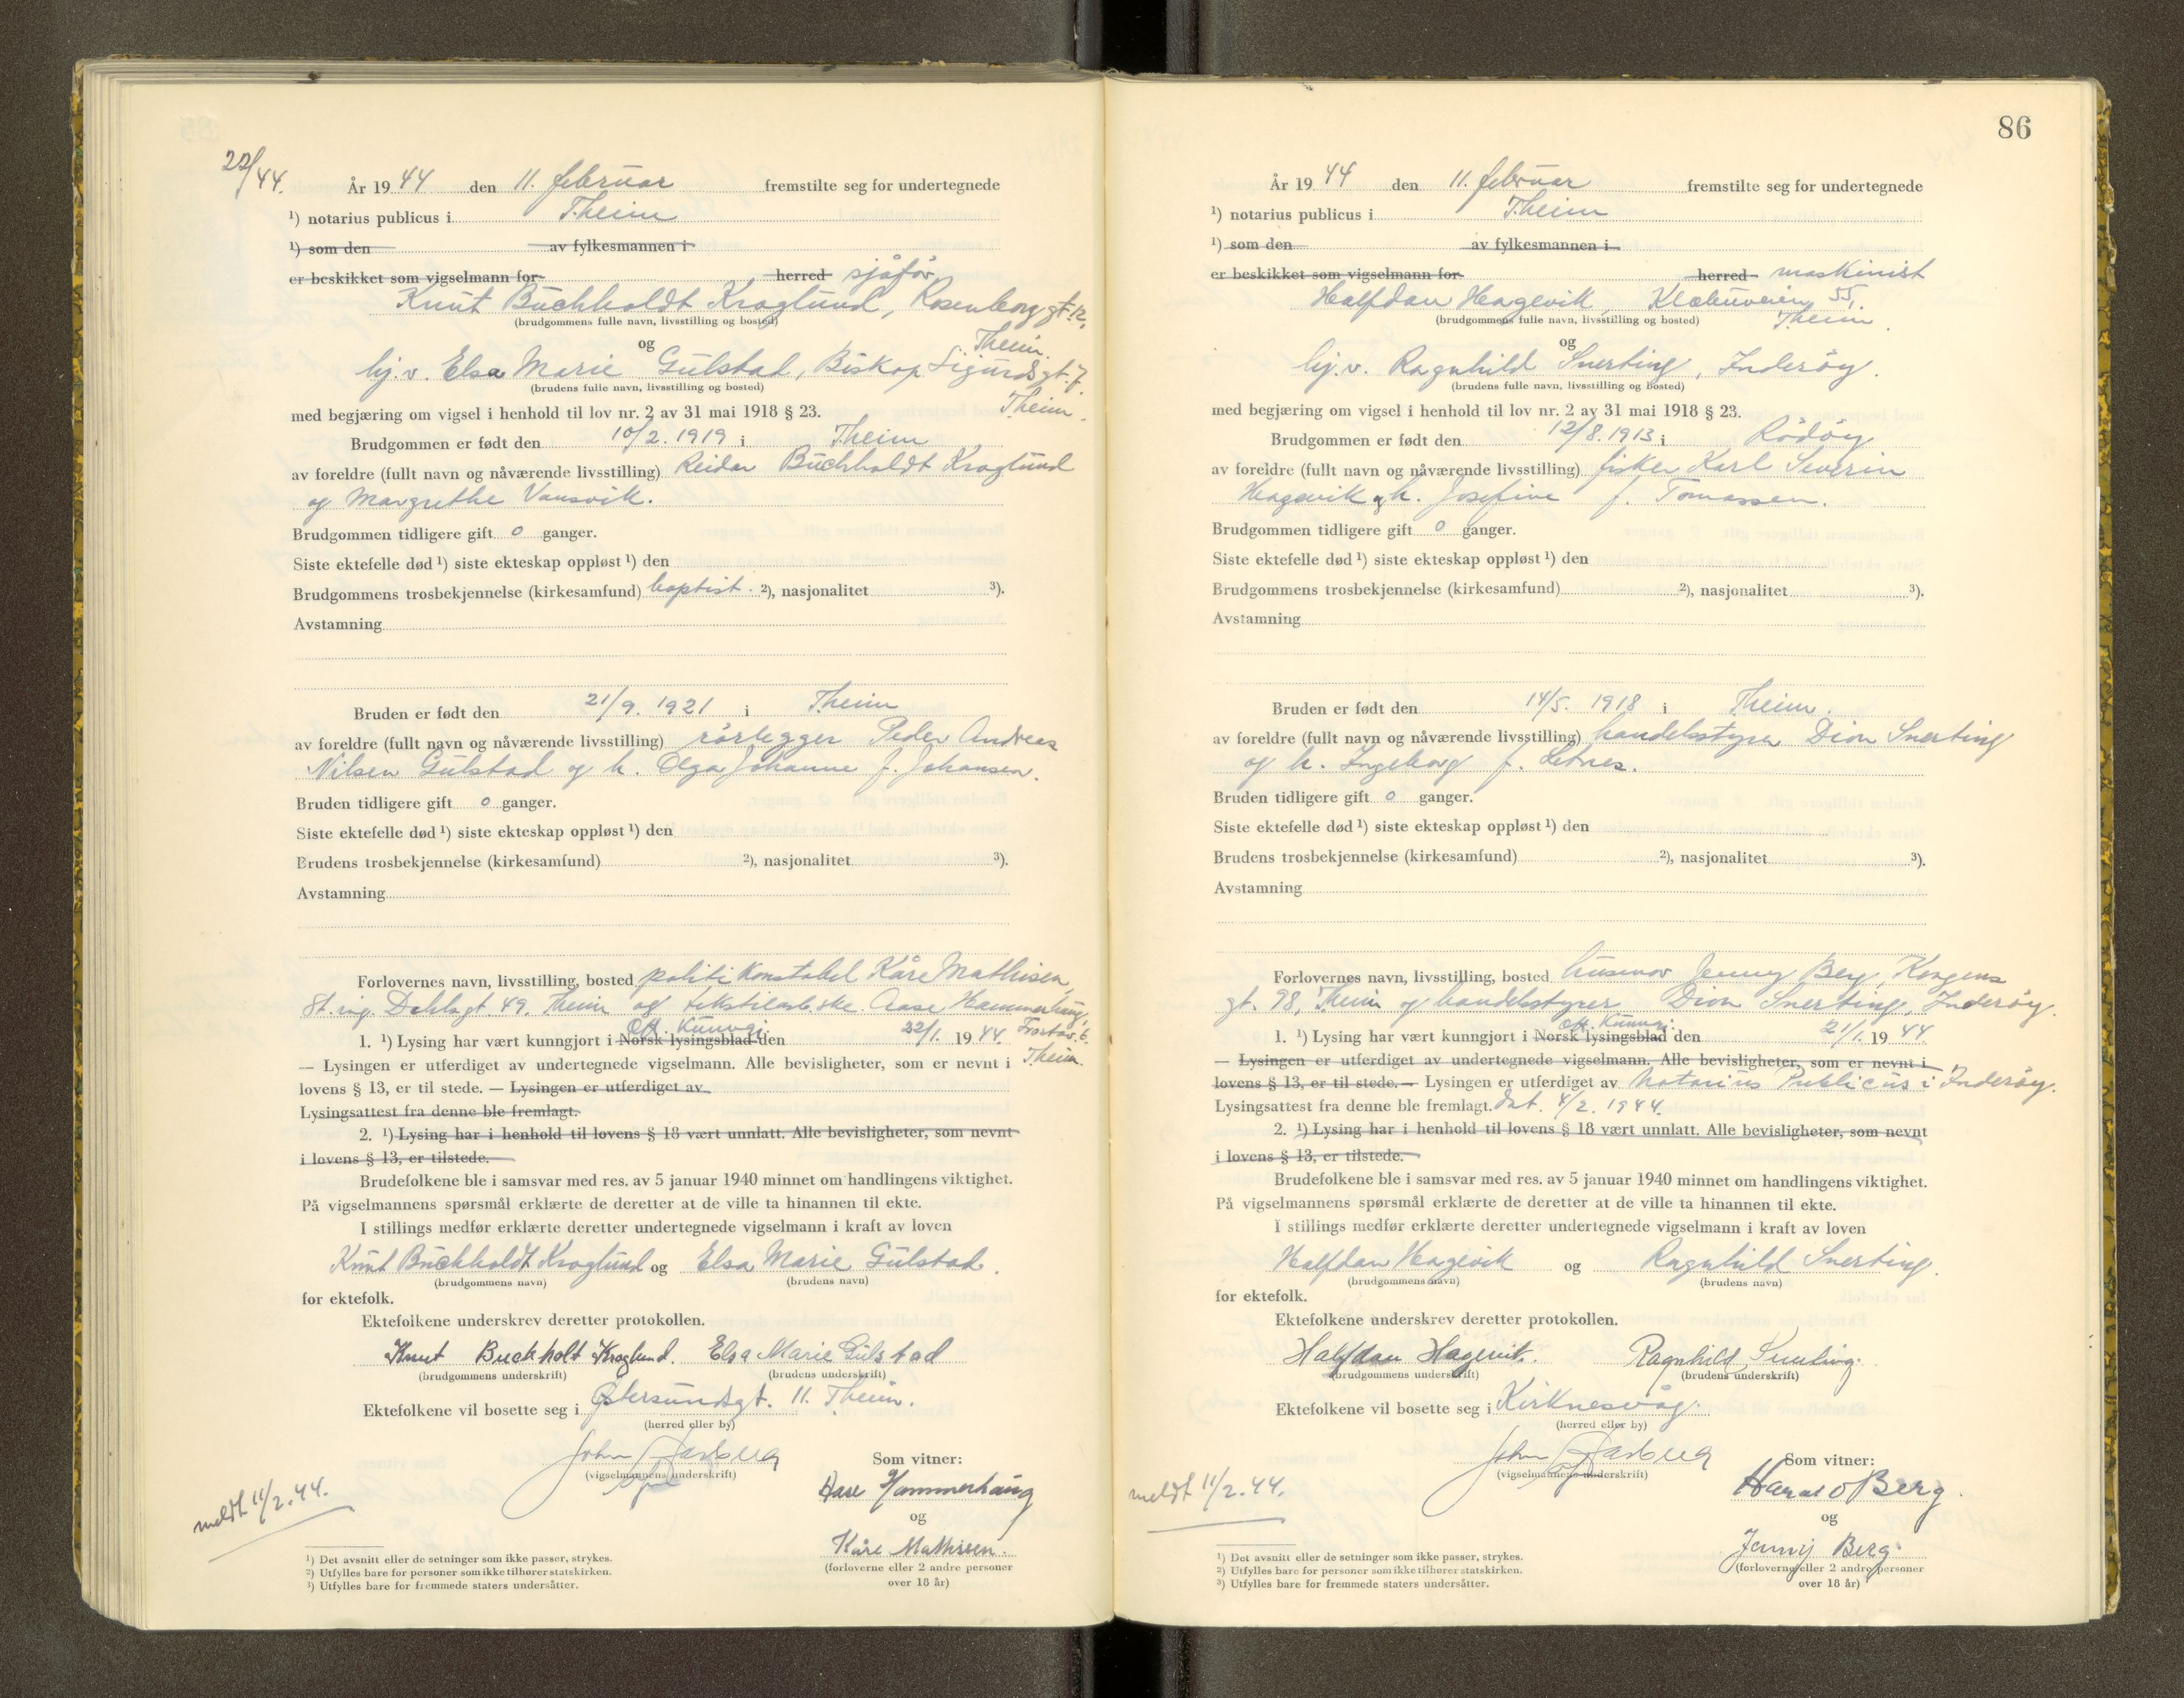 22/44.
År 19 44 den 11. februar fremstilte seg for undertegnede
¹) notarius publicus i Theim
¹) som den av fylkesmannen i
er beskikket som vigselmann for herred sjåför
Knut Buchholdt Kroglund, Rosenborggt. 12,
(brudgommens fulle navn, livsstilling og bosted)
Theim.
og
hj.v. Elsa Marie Gulstad, Biskop Sigurdsgt. 7.
(brudens fulle navn, livsstilling og bosted)
Theim.
med begjæring om vigsel i henhold til lov nr. 2 av 31 mai 1918 § 23.
Brudgommen er født den 10/2. 1919 i Theim
av foreldre (fullt navn og nåværende livsstilling) Reidar Buchholdt Kroglund
og Margrethe Vansvik.
Brudgommen tidligere gift 0 ganger.
Siste ektefelle død ¹) siste ekteskap oppløst ¹) den
Brudgommens trosbekjennelse (kirkesamfund) baptist. ²), nasjonalitet ³).
Avstamning
Bruden er født den 21/9. 1921 i Theim
av foreldre (fullt navn og nåværende livsstilling) rörlegger Peder Andreas
Nilsen Gulstad og h. Olga Johanne f. Johansen.
Bruden tidligere gift 0 ganger.
Siste ektefelle død ¹) siste ekteskap oppløst ¹) den
Brudens trosbekjennelse (kirkesamfund) ²), nasjonalitet ³).
Avstamning
Forlovernes navn, livsstilling, bosted politikonstabel Kåre Mathisen,
St. ing. Dahlsgt 49, Theim og Aase Hammerhaug,
Off. Kunngj.
1. ¹) Lysing har vært kunngjort i Norsk lysingsblad den 22/1. 19 44. Frostav. 6.
— Lysingen er utferdiget av undertegnede vigselmann. Alle bevisligheter, som er nevnt i Theim.
lovens § 13, er til stede. — Lysingen er utferdiget av
Lysingsattest fra denne ble fremlagt.
2. ¹) Lysing har i henhold til lovens § 18 vært unnlatt. Alle bevisligheter, som nevnt
i lovens § 13, er tilstede.
Brudefolkene ble i samsvar med res. av 5 januar 1940 minnet om handlingens viktighet.
På vigselmannens spørsmål erklærte de deretter at de ville ta hinannen til ekte.
I stillings medfør erklærte deretter undertegnede vigselmann i kraft av loven
Knut Buchholdt Kroglund og Elsa Marie Gulstad.
(brudgommens navn) (brudens navn)
for ektefolk.
Ektefolkene underskrev deretter protokollen.
Knut Buckholt Kroglund. Elsa Marie Gulstad
(brudgommens underskrift) (brudens underskrift)
Ektefolkene vil bosette seg i Østersundsgt. 11. Theim.
(herred eller by)
John Aasberg
(vigselmannens underskrift)
Som vitner:
Aase Hammerhaug
og
Kåre Mathisen.
(forloverne eller 2 andre personer
over 18 år)
meldt 11/2.44.
¹) Det avsnitt eller de setninger som ikke passer, strykes.
²) Utfylles bare for personer som ikke tilhører statskirken.
³) Utfylles bare for fremmede staters undersåtter.
86
År 19 44 den 11. februar fremstilte seg for undertegnede
¹) notarius publicus i Theim
¹) som den av fylkesmannen i
er beskikket som vigselmann for herred maskinist
Halfdan Hagevik, Klæbuveien 55,
(brudgommens fulle navn, livsstilling og bosted) Theim.
og
hj.v. Ragnhild Snerting, Inderöy.
(brudens fulle navn, livsstilling og bosted)
med begjæring om vigsel i henhold til lov nr. 2 av 31 mai 1918 § 23.
Brudgommen er født den 12/8. 1913 i Rödöy
av foreldre (fullt navn og nåværende livsstilling) fisker Karl Severin
Hagevik og h. Josefine f. Tomassen.
Brudgommen tidligere gift 0 ganger.
Siste ektefelle død ¹) siste ekteskap oppløst ¹) den
Brudgommens trosbekjennelse (kirkesamfund) ²), nasjonalitet ³).
Avstamning
Bruden er født den 14/5. 1918 i Theim.
av foreldre (fullt navn og nåværende livsstilling) handelsstyrer Dion Snerting
og h. Ingeborg f. Letnes.
Bruden tidligere gift 0 ganger.
Siste ektefelle død ¹) siste ekteskap oppløst ¹) den
Brudens trosbekjennelse (kirkesamfund) ²), nasjonalitet ³).
Avstamning
Forlovernes navn, livsstilling, bosted husmor Jenny Berg, Kongens
gt. 98, Theim og handelsstyrer Dion Snerting, Inderöy.
Off. Kunngj.
1. ¹) Lysing har vært kunngjort i Norsk lysingsblad den 21/1. 19 44.
— Lysingen er utferdiget av undertegnede vigselmann. Alle bevisligheter, som er nevnt i
lovens § 13, er til stede. — Lysingen er utferdiget av Notarius Publicus i Inderöy.
Lysingsattest fra denne ble fremlagt. dat. 4/2. 1944.
2. ¹) Lysing har i henhold til lovens § 18 vært unnlatt. Alle bevisligheter, som nevnt
i lovens § 13, er tilstede.
Brudefolkene ble i samsvar med res. av 5 januar 1940 minnet om handlingens viktighet.
På vigselmannens spørsmål erklærte de deretter at de ville ta hinannen til ekte.
I stillings medfør erklærte deretter undertegnede vigselmann i kraft av loven
Halfdan Hagevik og Ragnhild Snerting.
(brudgommens navn) (brudens navn)
for ektefolk.
Ektefolkene underskrev deretter protokollen.
Halfdan Hagevik. Ragnhild Snerting.
(brudgommens underskrift) (brudens underskrift)
Ektefolkene vil bosette seg i Kirknesvåg.
(herred eller by)
John Aasberg
(vigselmannens underskrift)
Som vitner:
Harald Berg.
og
Jenny Berg.
(forloverne eller 2 andre personer
over 18 år)
meldt 11/2.44.
¹) Det avsnitt eller de setninger som ikke passer, strykes.
²) Utfylles bare for personer som ikke tilhører statskirken.
³) Utfylles bare for fremmede staters undersåtter.